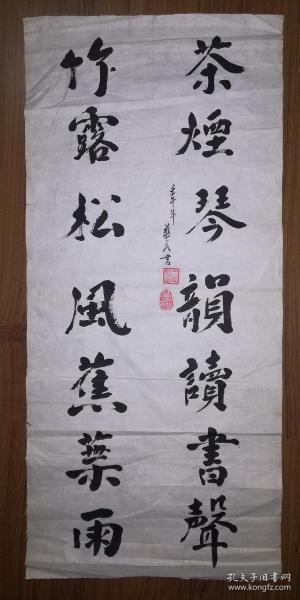 茶煙琴韻讀書聲
竹露松風蕉葉雨
壬午年 華民書
孔夫子旧书网
www.kongfz.com